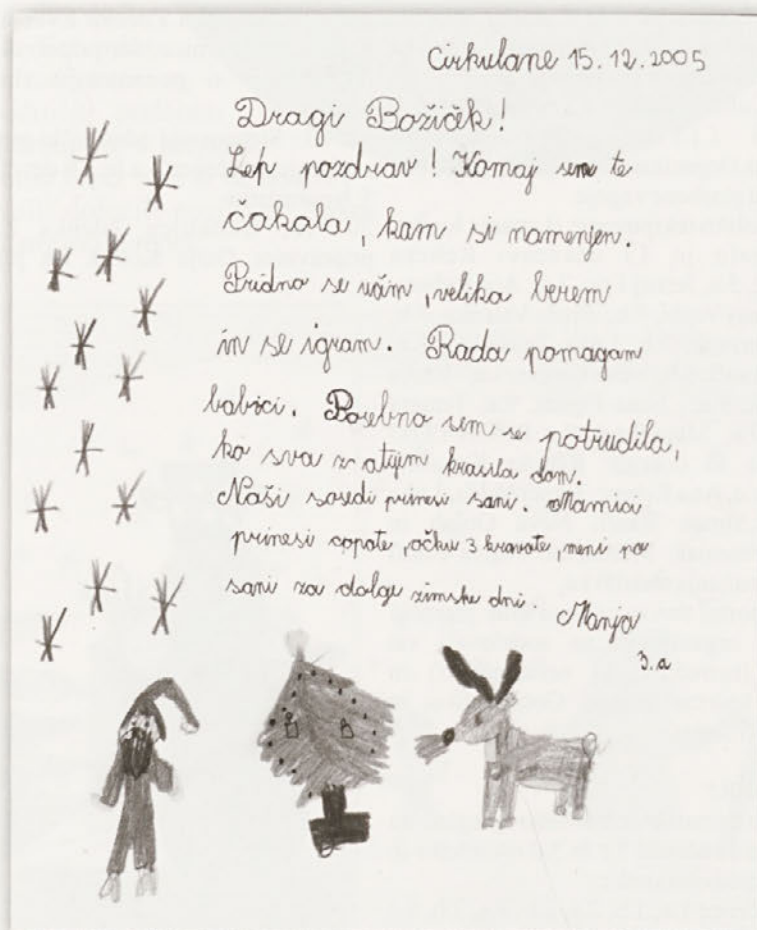 Cirkulane 15.12.2005
Dragi Božiček!
Lep pozdrav! Komaj sem te
čakala, kam si namenjen.
Pridno se učim, veliko berem
in se igram. Rada pomagam
babici. Posebno sem se potrudila,
ko sva z atijem krasila dom.
Naši sosedi prinesi sani. Mamici
prinesi copate, očku 3 kravate, meni pa
sani za dolge zimske dni. Manja
3.a